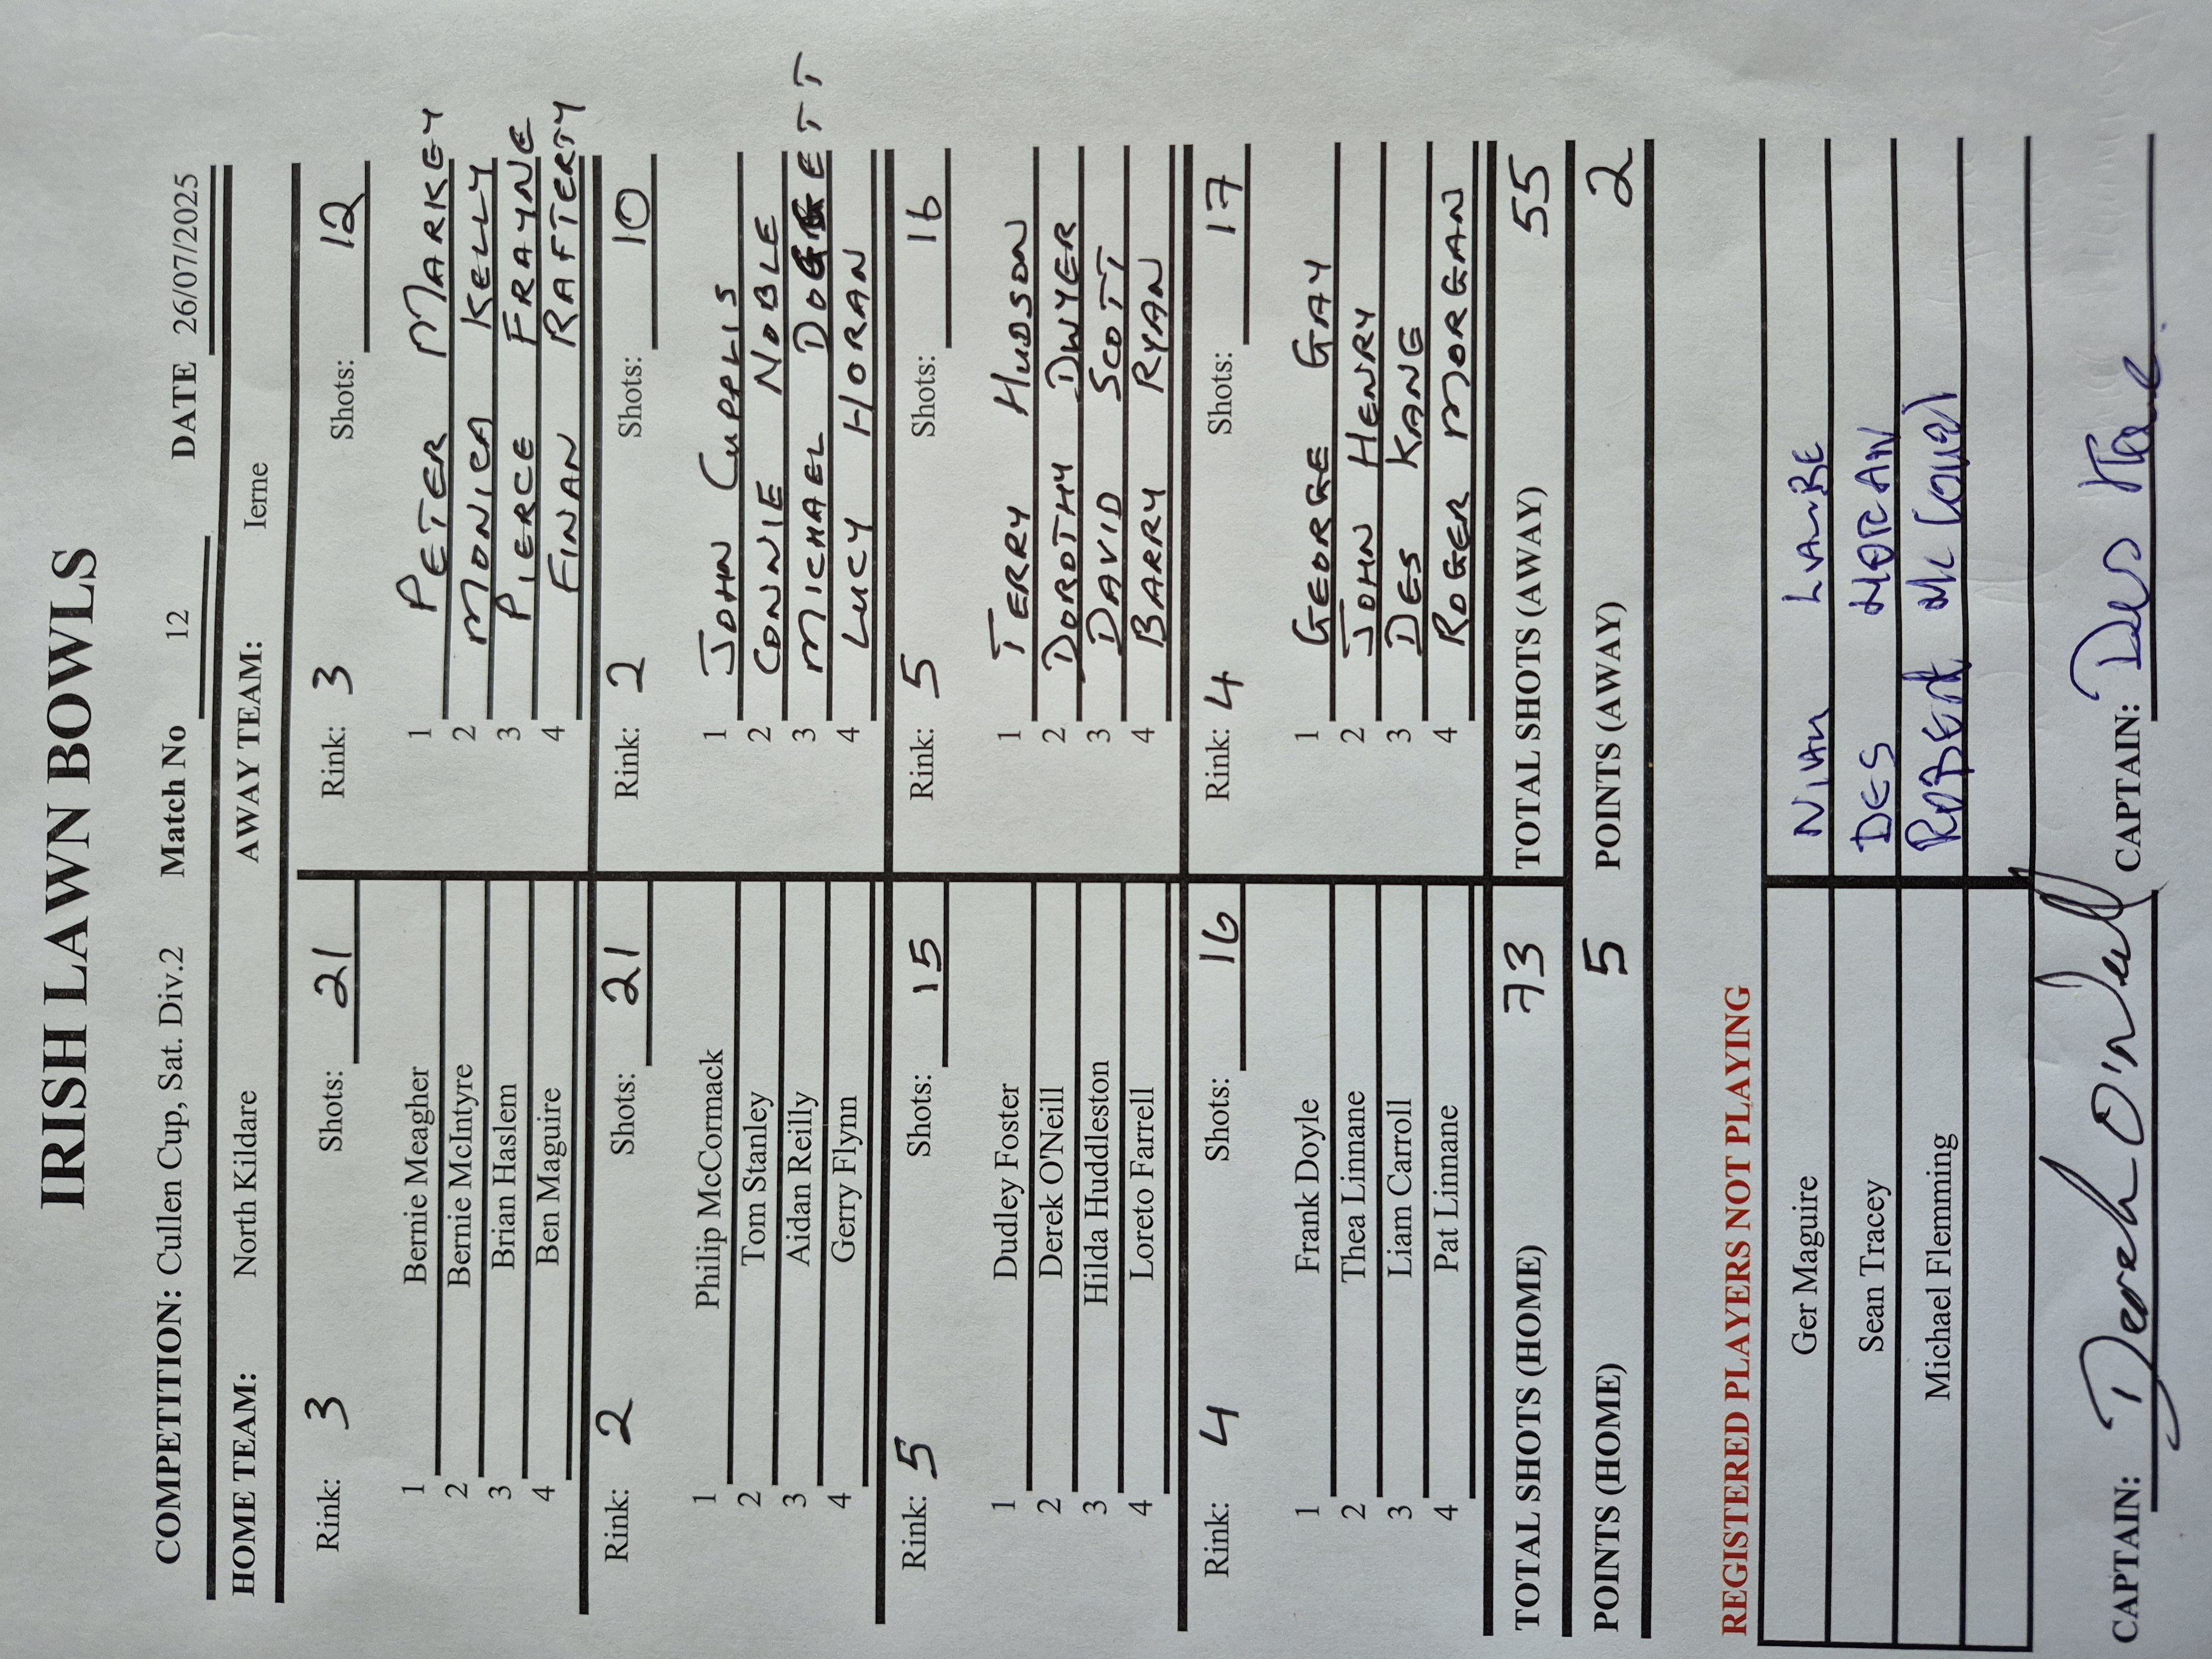 IRISH LAWN BOWLS
COMPETITION: Cullen Cup, Sat. Div.2 Match No 12 DATE 26/07/2025
HOME TEAM: North Kildare AWAY TEAM: Ierne
Rink: 3 Shots: 21 Rink: 3 Shots: 12
1 Bernie Meagher 1 PETER MARKEY
2 Bernie McIntyre 2 MONICA KELLY
3 Brian Haslem 3 PIERCE FRAYNE
4 Ben Maguire 4 FINAN RAFTERTY
Rink: 2 Shots: 21 Rink: 2 Shots: 10
1 Philip McCormack 1 JOHN CUPPLIS
2 Tom Stanley 2 CONNIE NOBLE
3 Aidan Reilly 3 MICHAEL
4 Gerry Flynn 4 LUCY HORAN
Rink: 5 Shots: 15 Rink: 5 Shots: 16
1 Dudley Foster 1 TERRY HUDSON
2 Derek O'Neill 2 DOROTHY DWYER
3 Hilda Huddleston 3 DAVID SCOTT
4 Loreto Farrell 4 BARRY RYAN
Rink: 4 Shots: 16 Rink: 4 Shots: 17
1 Frank Doyle 1 GEORGE GAY
2 Thea Linnane 2 JOHN HENRY
3 Liam Carroll 3 DES KANE
4 Pat Linnane 4 ROGER MORGAN
TOTAL SHOTS (HOME) 73 TOTAL SHOTS (AWAY) 55
POINTS (HOME) 5 POINTS (AWAY) 2
REGISTERED PLAYERS NOT PLAYING
Ger Maguire
Sean Tracey DES
Michael Flemming ROBERT
CAPTAIN: Derek O'Neill CAPTAIN: Des